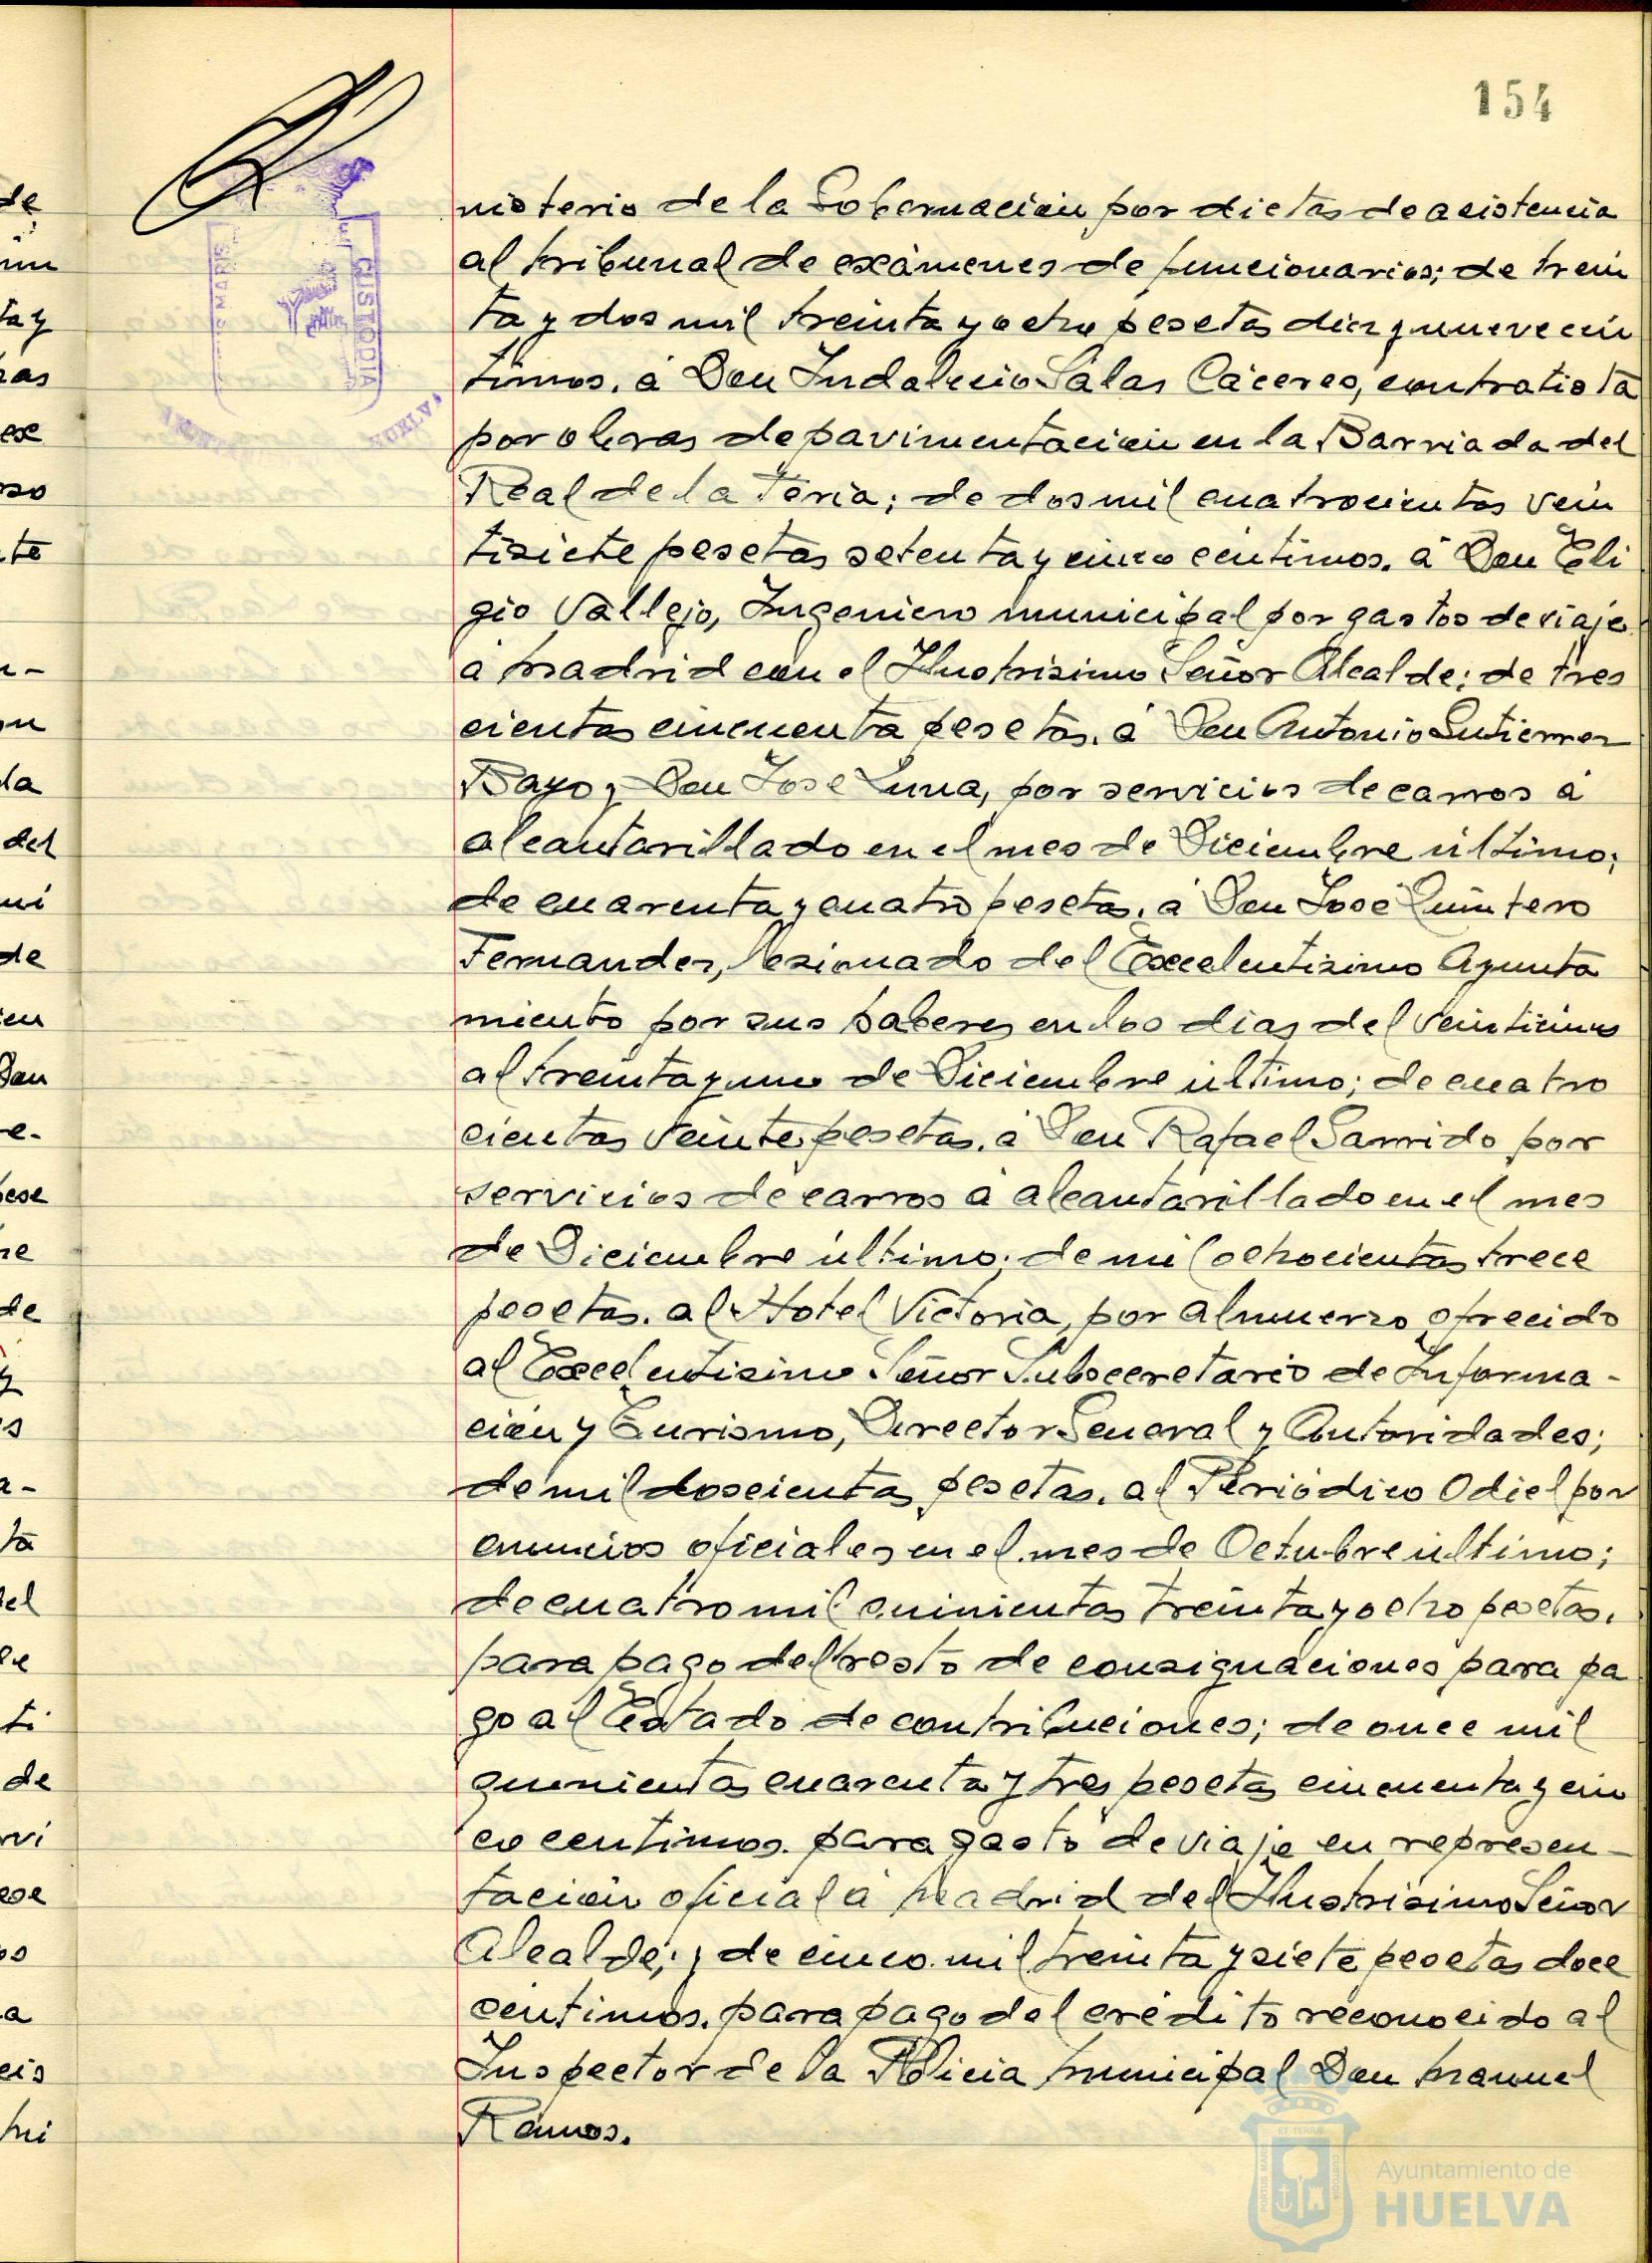 154
nisterio de la Gobernación por dietas de asistencia
al tribunal de exámenes de funcionarios; de trein
ta y dos mil treinta y ocho pesetas diez y nueve cén
timos. á Don Indalecio Salas Cáceres, contratista
por obras de pavimentación en la Barriada del
Real de la Feria; de dos mil cuatrocientas vein
tisiete pesetas setenta y cinco centimos. á Don Eli
gio Vallejo, Ingeniero municipal por gastos de viaje
á Madrid con el Ilustrisimo Señor Alcalde; de tres
cientas cincuenta pesetas. á Don Antonio Gutierrez
Bayo y Don José Luna, por servicios de carros á
alcantarillado en el mes de Diciembre último;
de cuarenta y cuatro pesetas. á Don José Quintero
Fernandez, lesionado del Excelentisimo Ayunta
miento por sus haberes en los dias del veinticinco
al treinta y uno de Diciembre último; de cuatro
cientas veinte pesetas. á Don Rafael Garrido por
servicios de carros á alcantarillado en el mes
de Diciembre último; de mil ochocientas trece
pesetas. al Hotel Victoria, por almuerzo ofrecido
al Excelentisimo Señor Subsecretario de Informa-
ción y Turismo, Director General y Autoridades;
de mil doscientas pesetas. al Periódico Odiel por
anuncios oficiales en el mes de Octubre último;
de cuatro mil quinientas treinta y ocho pesetas.
para pago del resto de consignaciones para pa
go al Estado de contribuciones; de once mil
quinientas cuarenta y tres pesetas cincuenta y cin
co centimos. para gasto de viaje en represen-
tación oficial á Madrid del Ilustrisimo Señor
Alcalde; y de cinco mil treinta y siete pesetas doce
centimos. para pago del crédito reconocido al
Inspector de la Policia Municipal Don Manuel
Ramos.
MARIS
CUSTODIA
HUELVA
de
ta y
ras
te
la
del
de
Don
de
de
ti
de
Ayuntamiento de
HUELVA